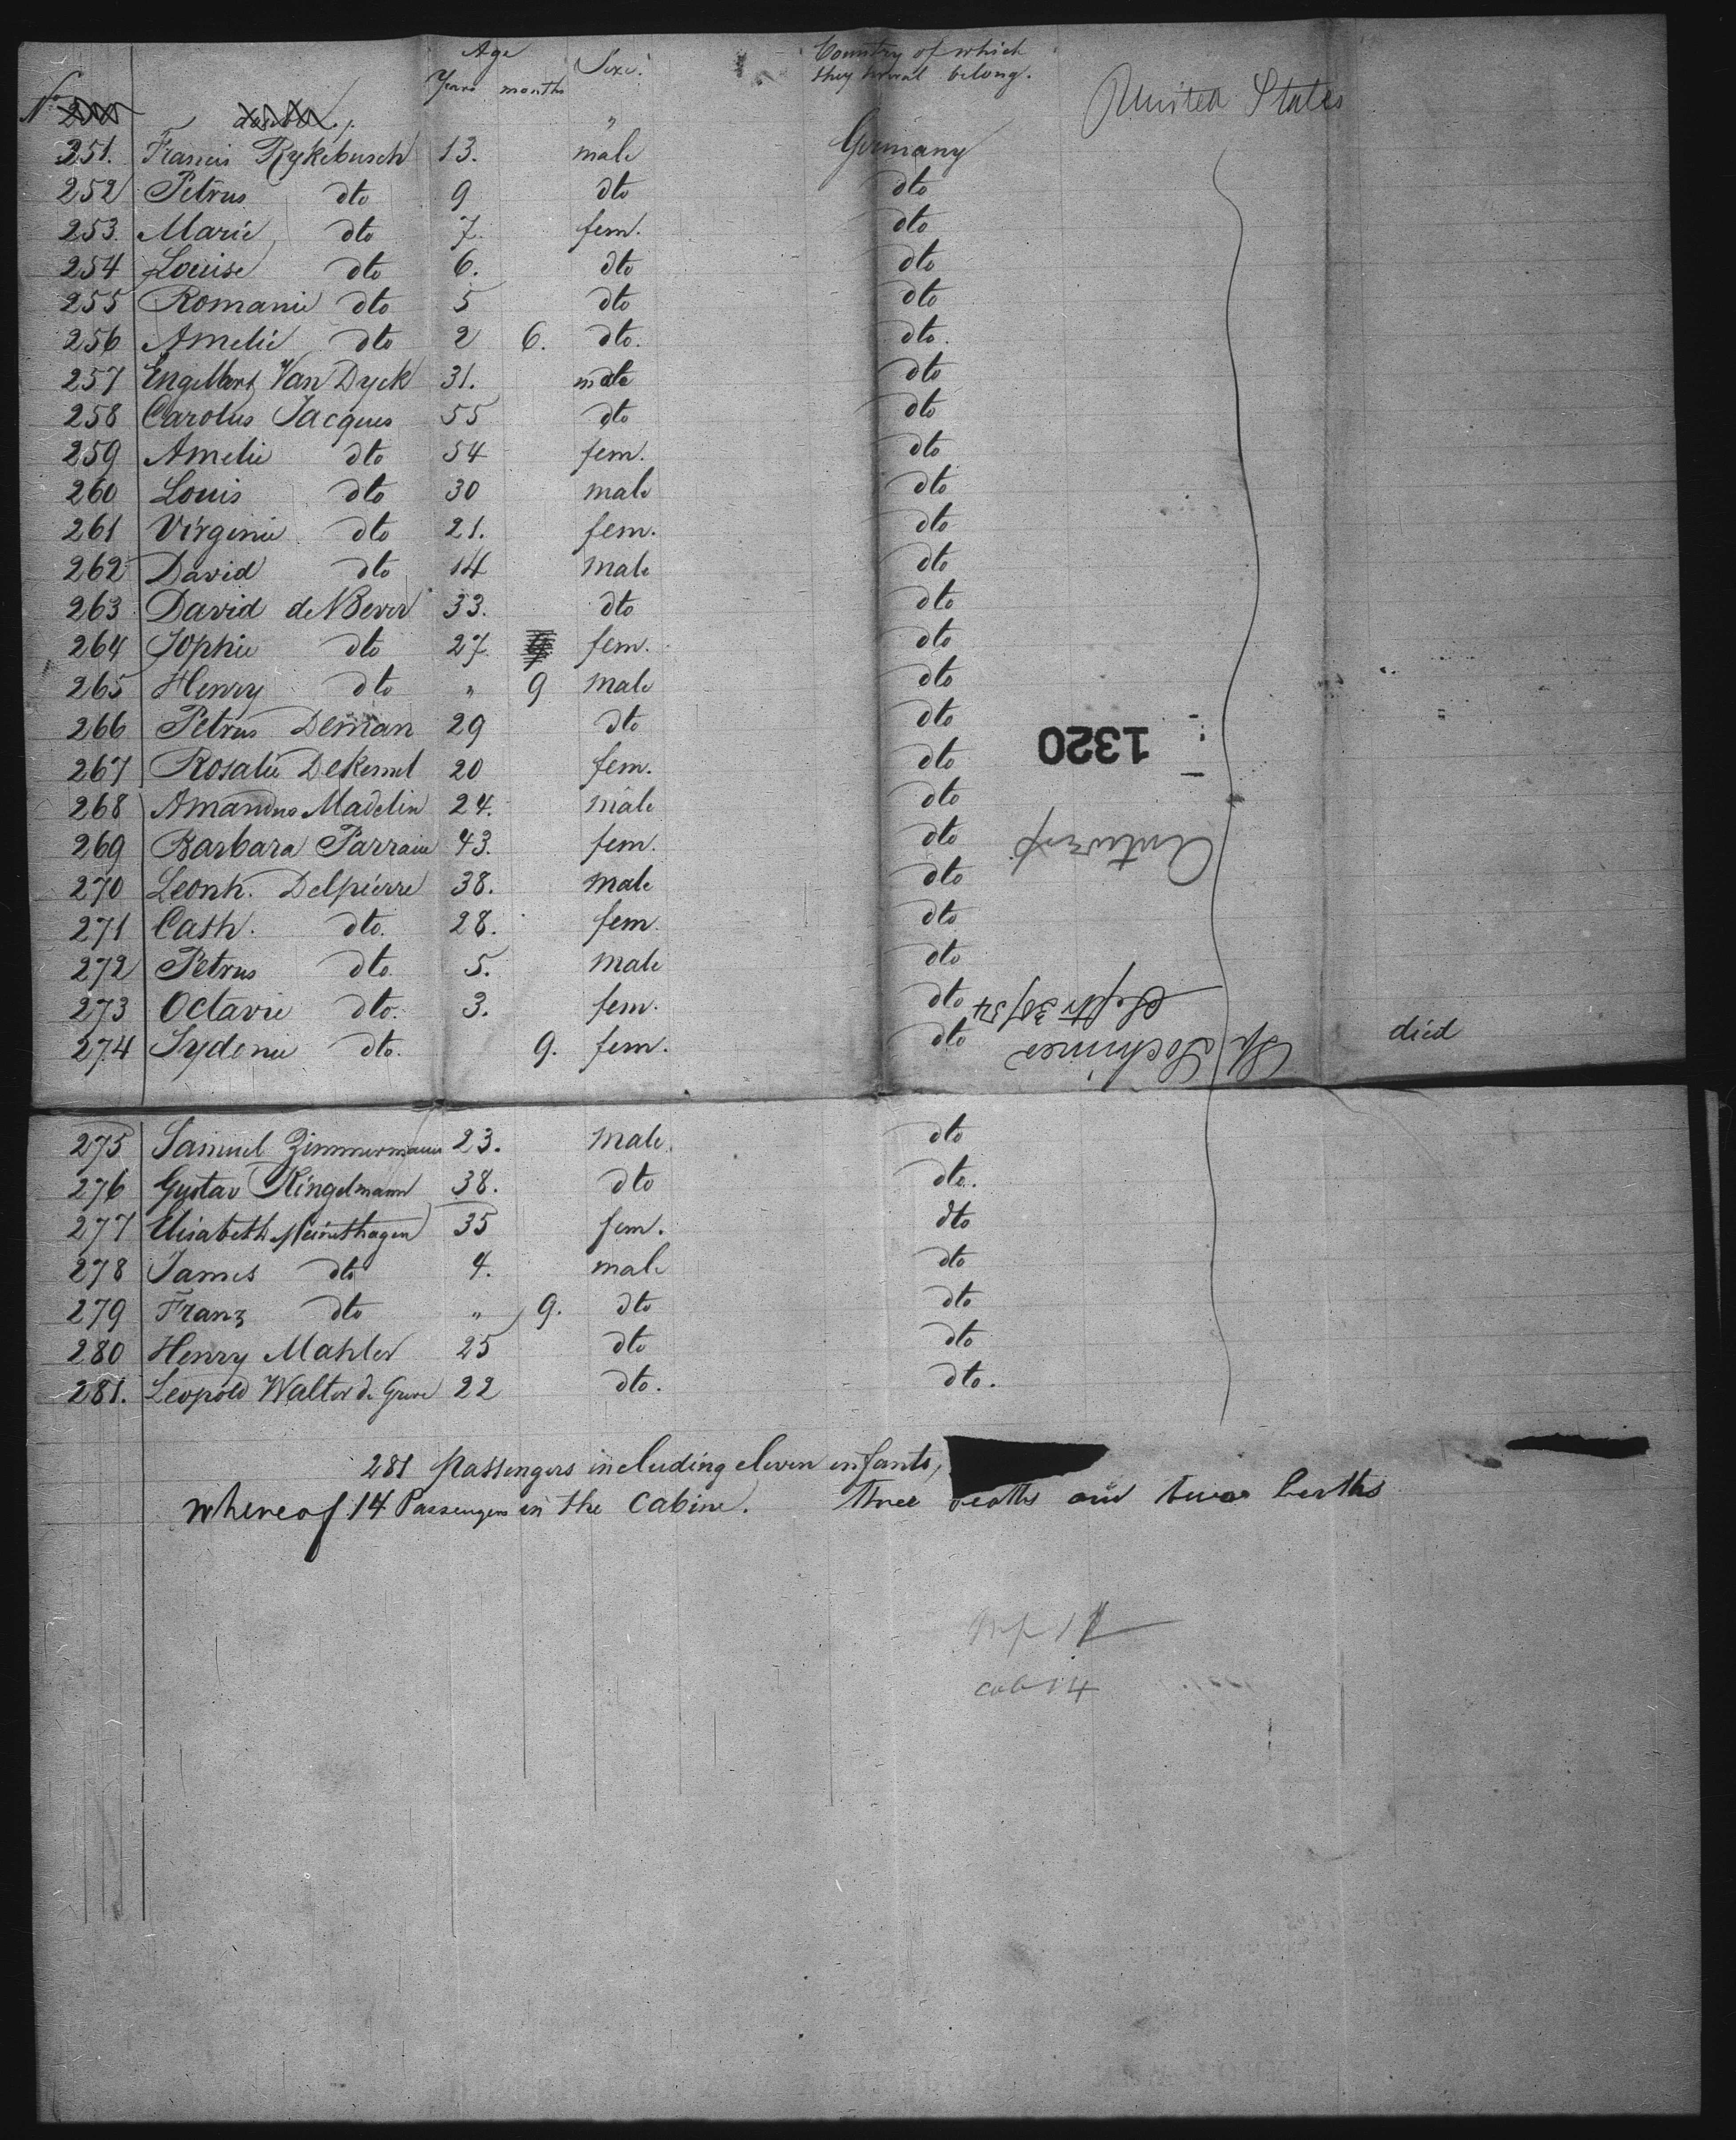 Age Country of which
Years months Sexe. they belong. United States
No
251. Francis Rykebusch 13. male Germany
252 Petrus dto 9 dto dto
253. Marie dto 7. fem. dto
254 Louise dto 6. dto dto
255 Romanie dto 5 dto dto
256 Amelie dto 2 6. dto. dto.
257 Engelbert Van Dyck 31. male dto
258 Carolus Jacques 55 dto dto
259 Amelie dto 54 fem. dto
260 Louis dto 30 male dto
261 Virginie dto 21. fem. dto
262 David dto 14 male dto
263 David de 33. dto dto
264 Sophie dto 27. fem. dto
265 Henry dto " 9 male dto
266 Petrus Deman 29 dto dto
267 Rosalie 20 fem. dto
268 Amandus Madelin 24. male dto
269 Barbara 43. fem. dto
270 Leonh. Delpierre 38. male dto
271 Cath. dto. 28. fem. dto
272 Petrus dto. 5. male dto
273 Octavie dto. 3. fem. dto
274 Sydonie dto. 9. fem. dto died
1320
Antwerp
Septr 30/54
275 Samuel Zimmermann 23. male. dto
276 Gustav Ringelmann 38. dto dto.
277 Elisabeth Meinethagen 35 fem. dto
278 James dto 4. male dto
279 Franz dto " 9. dto dto
280 Henry Mahler 25 dto dto
281. Leopold Walter de Greve 22 dto. dto.
281 passengers including eleven infants,
whereof 14 Passengers in the cabine. three deaths and two births
cab 14